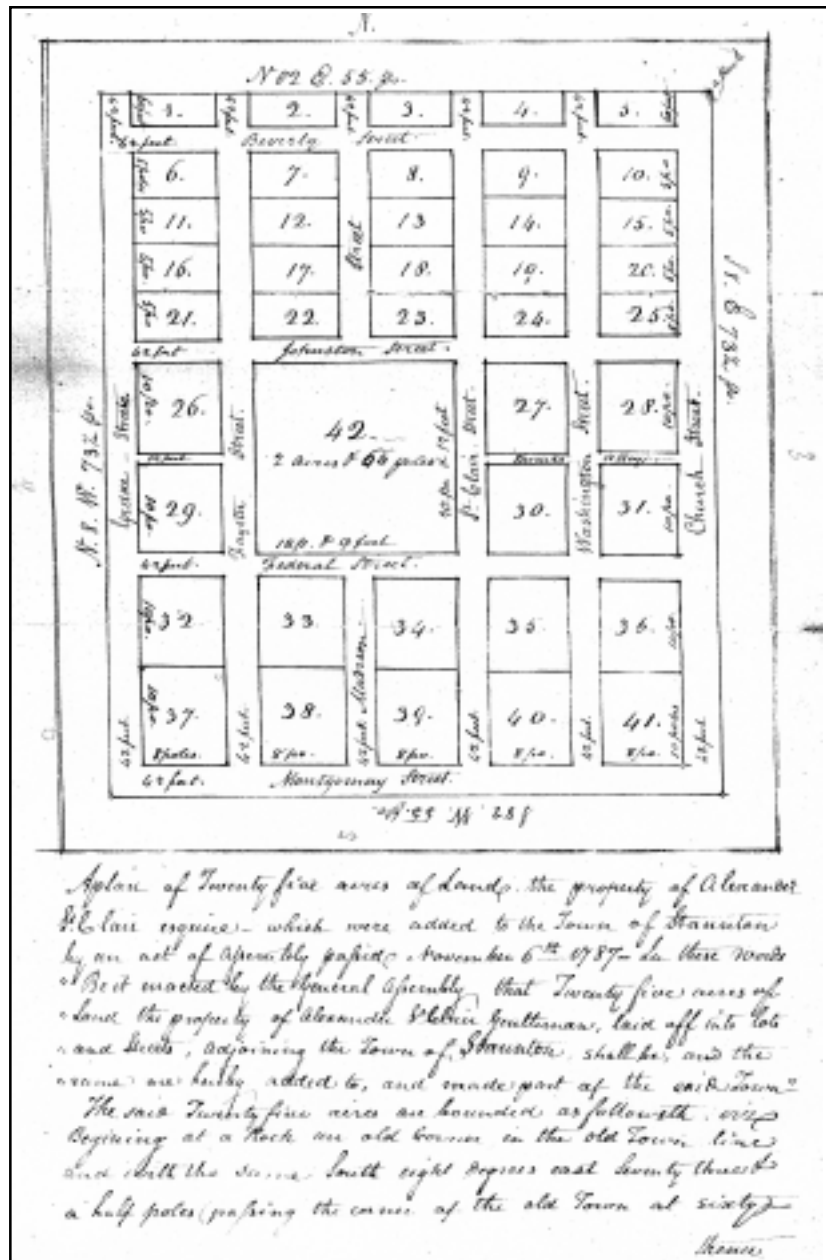 N.
N 82 E. 55. po.
42 feet 1. 2. 3. 4. 5.
42 feet Beverly Street
6. 7. 8. 9. 10.
11. 12. 13 14. 15.
Street
16. 17. 18. 19. 20.
21. 22. 23. 24. 25
42 feet Johnston Street.
26. 27. 28.
42.
2 acres & 66 poles
Street Street Street.
29. 30. 31.
St. Clair Washington Church
18 po. & 9 feet
42 feet. Federal Street.
32 33. 34. 35. 36.
Madison
37. 38. 39. 40. 41.
8 poles. 8 po. 8 po. 8 po. 8 po.
42 feet. Montgomery Street.
S 82. W. 55. po.
N. 8. W. 73½ po.
S 8. E 73½ po.
A plan of Twenty five acres of Land the property of Alexander
St. Clair esquire — which were added to the Town of Staunton
by an act of assembly passed November 6th 1787 — In these words
" Be it enacted by the General Assembly that Twenty five acres of
" Land the property of Alexander St. Clair Gentleman, laid off into lots
" and Streets, adjoining the Town of Staunton shall be, and the
" same are hereby added to, and made part of the said Town"
The said Twenty five acres are bounded as followeth viz
Begining at a Rock an old Corner in the old Town line
and with the same South eight degrees east Seventy three &
a half poles (passing the corner of the old Town at sixty